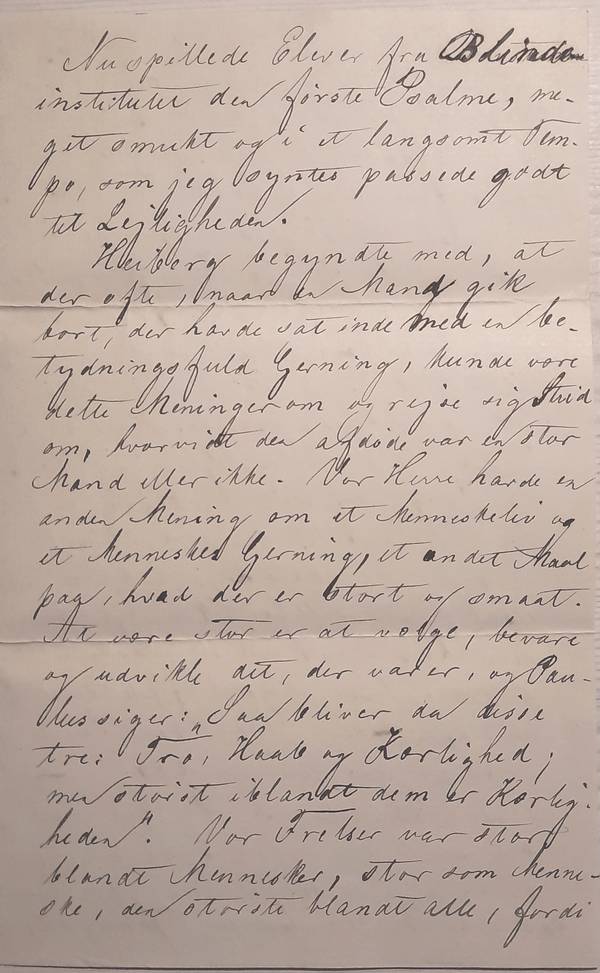 Nu spillede Elever fra Blinde-
institutet den første Psalme, me-
get smukt og i et langsomt Tem-
po, som jeg syntes passede godt
til Lejligheden.
Heiberg begyndte med, at
der ofte, naar en Mand gik
bort, der havde sat inde med en be-
tydningsfuld Gerning, kunde være
delte Meninger om og rejse sig Strid
om, hvorvidt den afdøde var en stor
Mand eller ikke. Vor Herre havde en
anden Mening om et Menneskeliv og
et Menneskes Gerning, et andet Maal
paa, hvad der er stort og smaat.
At være stor er at vælge, bevare
og udvikle det, der varer, og Pau-
lus siger: „Saa bliver da disse
tre: Tro, Haab og Kærlighed;
men størst iblandt dem er Kærlig-
heden". Vor Frelser var stor
blandt Mennesker, stor som Menne-
ske, den største blandt alle, fordi